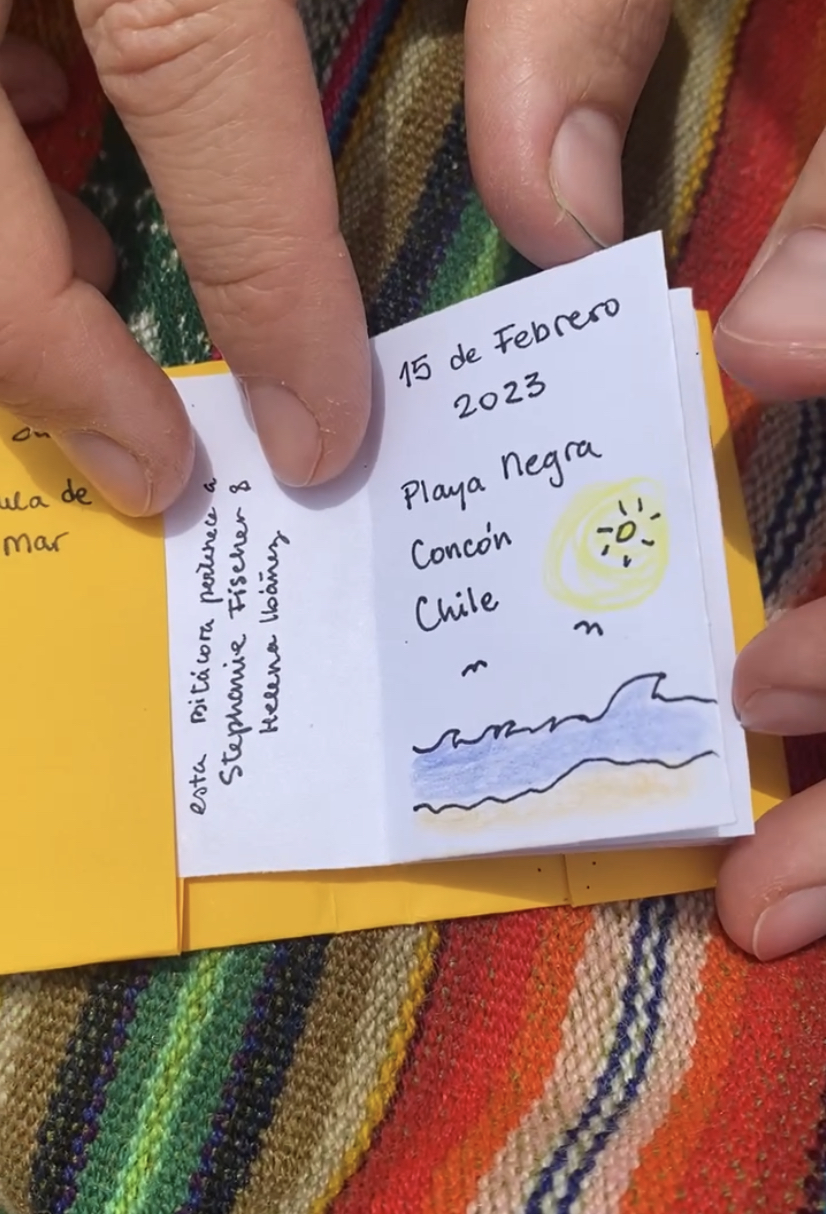 ula de
mar
esta Bitácora pertenece a
Stephanie Fischer &
Helena Ibáñez
15 de Febrero
2023
Playa Negra
Concón
Chile